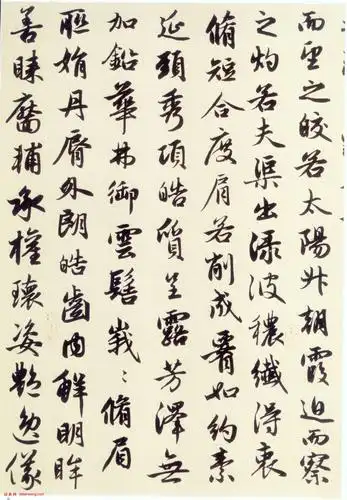 而望之皎若太陽升朝霞迫而察
之灼若夫渠出淥波穠纖得衷
脩短合度肩若削成腰如約素
延頸秀項皓質呈露芳澤無
加鉛華弗御雲髻峩〻脩眉
聮娟丹脣外朗皓齒內鮮明眸
善睞靨輔承權瓌姿艷逸儀